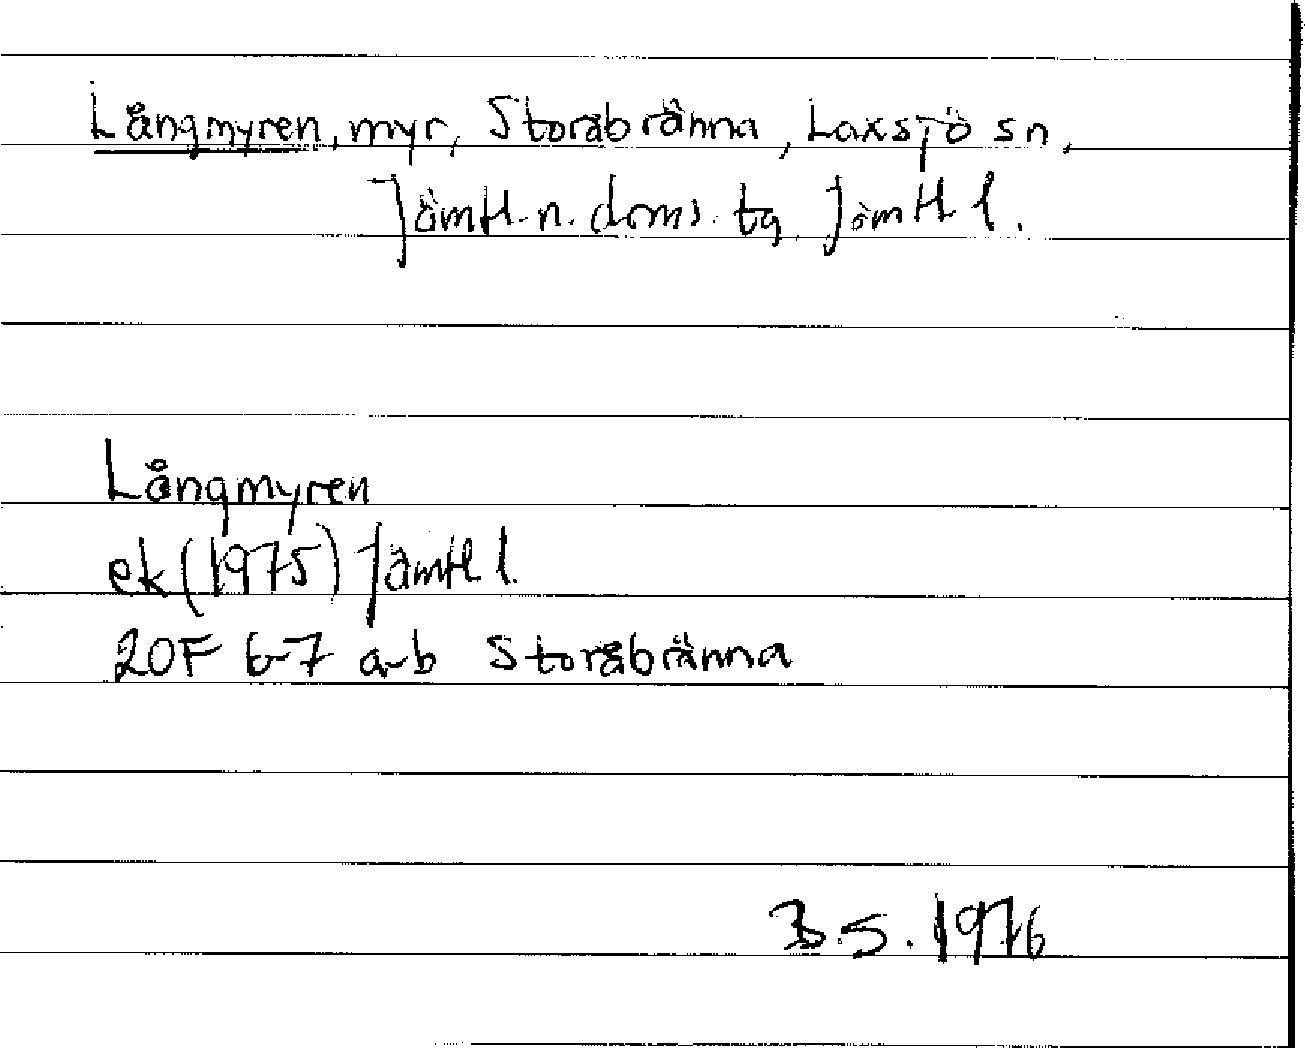 Långmyren, myr, Storåbränna, Laxsjö sn,
Jämtl. n. doms. tg, Jämtl l.
Långmyren
ek (1975) Jämtl l.
20F 6-7 a-b Storåbränna
3.5.1976